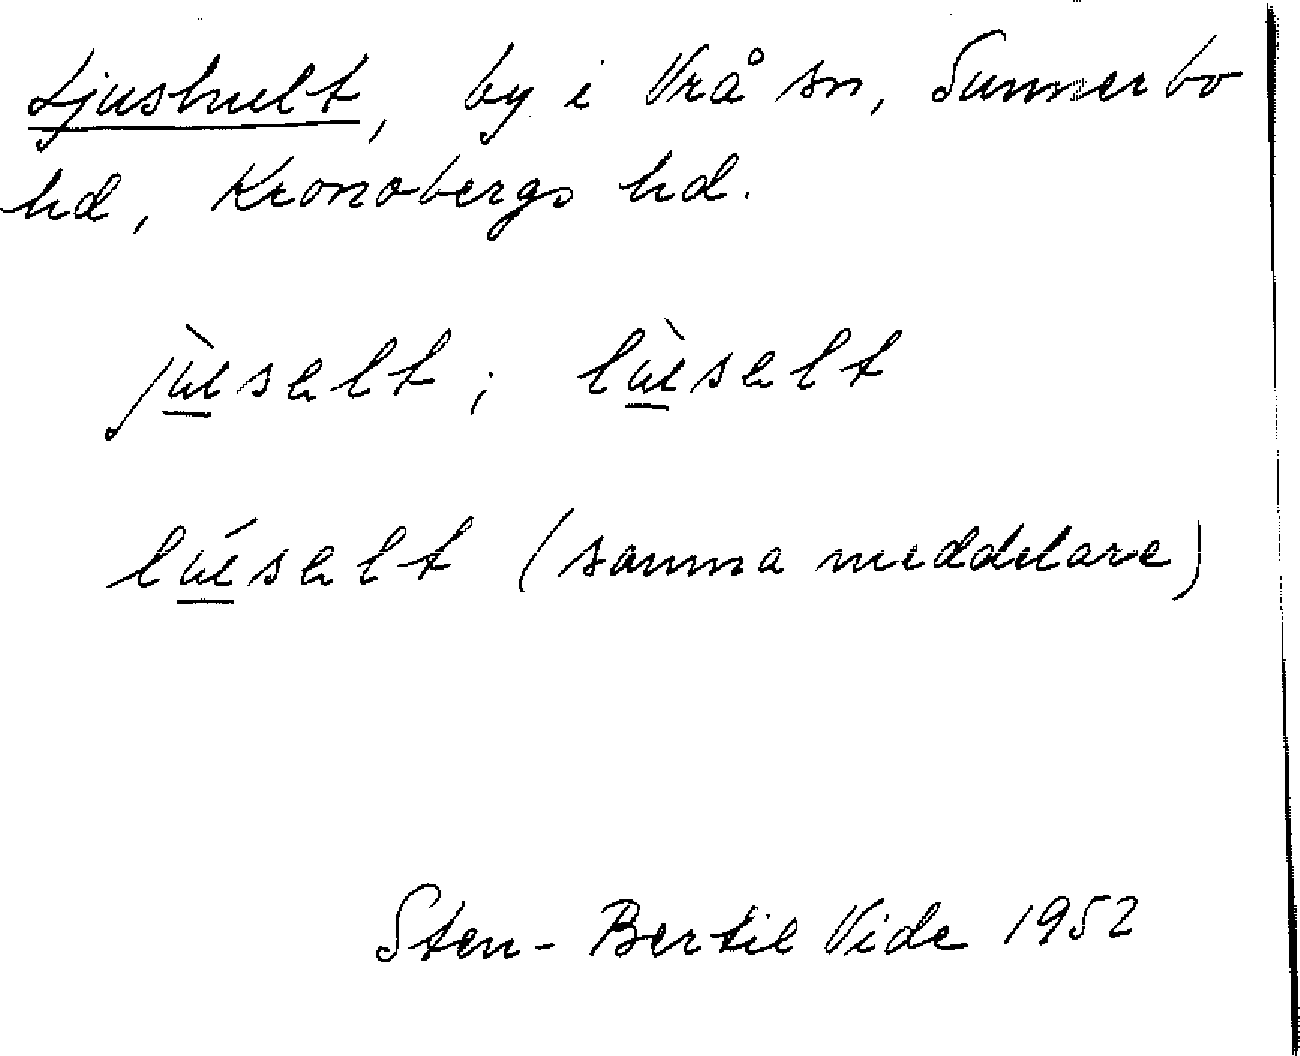 Ljushult, by i Vrå sn, Sunnerbo
hd, Kronobergs hd.
jùselt; lùselt
lúselt (samma meddelare)
Sten-Bertil Vide 1952